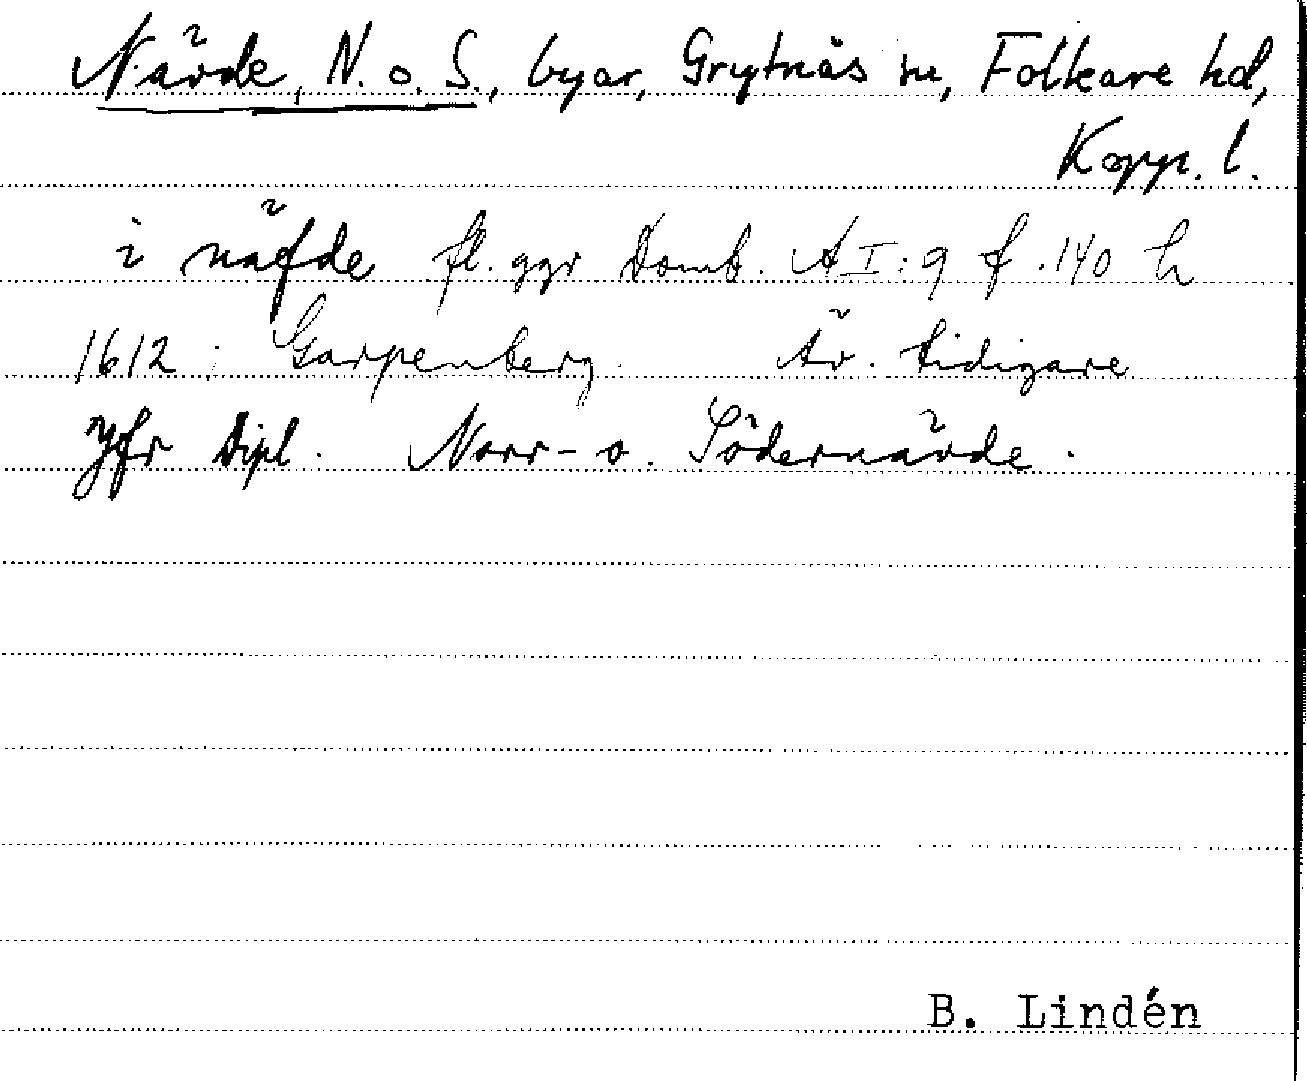 Närde, N. o. S., byar, Grytnäs sn, Folkare hd,
Kopp. l.
i näfde fl. ggr Domb. A I:9 f. 140 h
1612 : Garpenberg. Äv. tidigare
Jfr Dipl. Norr- o. Södernärde.
B. Lindén